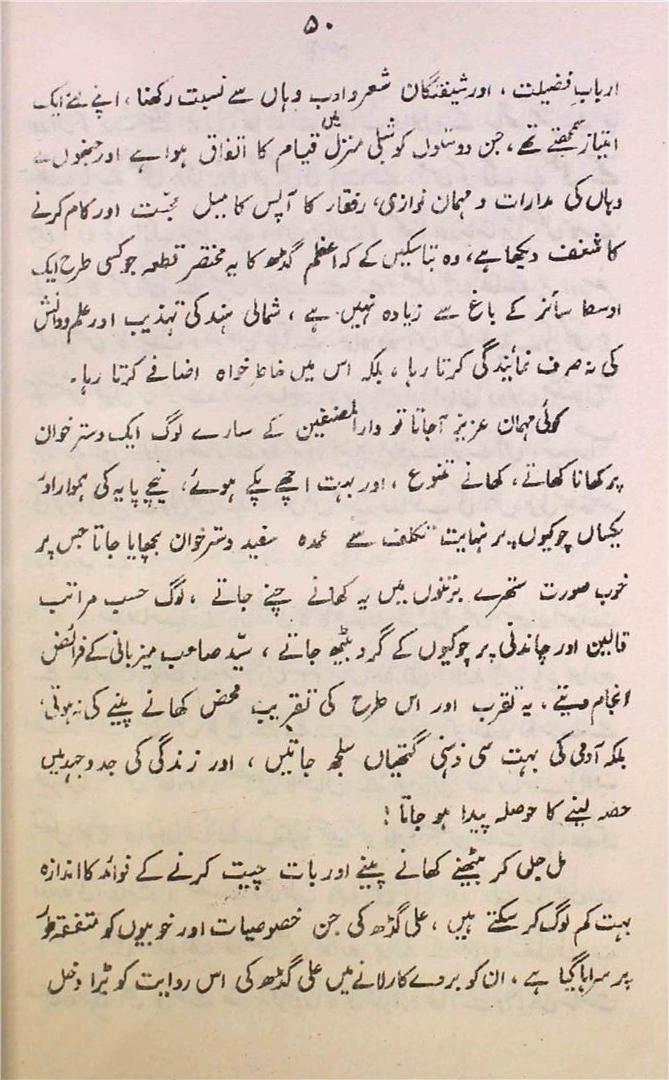 ۵۰
ارباب فضیلت ، اور شیفتگان شعر و ادب وہاں سے نسبت رکھنا ، اپنے لئے ایک
امتیاز سمجھتے تھے ، جن دوستوں کو شبلی منزل میں قیام کا اتفاق ہوا ہے اور جنھوں نے
وہاں کی مدارات و مہمان نوازی ، رفقار کا آپس کا میل محبت اور کام کرنے
کا شغف دیکھا ہے ، وہ بتا سکیں گے کہ اعظم گڈھ کا یہ مختصر قطعہ جو کسی طرح ایک
اوسط سائز کے باغ سے زیادہ نہیں ہے ، شمالی ہند کی تہذیب اور علم و دانش
کی نہ صرف نمایندگی کرتا رہا ، بلکہ اس میں خاطر خواہ اضافے کرتا رہا ۔
کوئی مہمان عزیز آجاتا تو دارالمصنفین کے سارے لوگ ایک دستر خوان
پر کھانا کھاتے ، کھانے متنوع ، اور بہت اچھے پکے ہوئے ، نیچے پایہ کی ہموار اور
یکساں چوکیوں پر نہایت تکلف سے عمدہ سفید دسترخوان بچھایا جاتا جس پر
خوب صورت ستھرے برتنوں میں یہ کھانے چنے جاتے ، لوگ حسب مراتب
قالین اور چاندنی پر چوکیوں کے گرد بیٹھ جاتے ، سیّد صاحب میزبانی کے فرائض
انجام دیتے ، یہ تقرب اور اس طرح کی تقریب محض کھانے پینے کی نہ ہوتی ،
بلکہ آدمی کی بہت سی ذہنی گتھیاں سلجھ جاتیں ، اور زندگی کی جد و جہد میں
حصہ لینے کا حوصلہ پیدا ہو جاتا !
مل جل کر بیٹھنے کھانے پینے اور بات چیت کرنے کے فوائد کا اندازہ
بہت کم لوگ کر سکتے ہیں ، علی گڈھ کی جن خصوصیات اور خوبیوں کو متفقہ طور
پر سراہا گیا ہے ، ان کو بروے کار لانے میں علی گڈھ کی اس روایت کو بڑا دخل